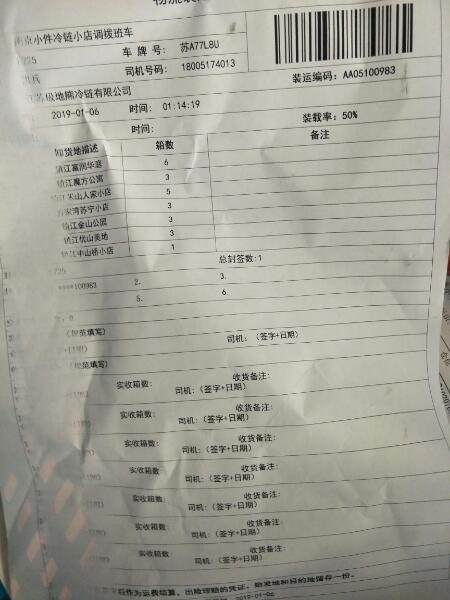 南京小件冷链小店调拨班车
725 车 牌 号: 苏A77L8U
司机号码: 18005174013
江苏极地熊冷链有限公司 装运编码: AA05100983
2019-01-06 时间: 01:14:19
时间: 装载率: 50%
卸货地描述 箱数 备注
镇江富润华庭 6
镇江魔方公寓 3
镇江米山人家小店 5
苏宁小店 3
镇江金山公园 3
镇江优山美地 3
镇江中山桥小店 1
725 总封签数:1
****100983 2. 3.
5. 6.
(规范填写)
司机: (签字+日期)
(规范填写)
实收箱数: 收货备注:
司机: (签字+日期)
实收箱数: 收货备注:
司机: (签字+日期)
实收箱数: 收货备注:
司机: (签字+日期)
实收箱数: 收货备注:
司机: (签字+日期)
实收箱数: 收货备注:
司机: (签字+日期)
实收箱数: 收货备注:
司机: (签字+日期)
实收箱数: 收货备注:
司机: (签字+日期)
后作为运费结算、出险理赔的凭证, 始发地和目的地留存一份。
2019-01-06